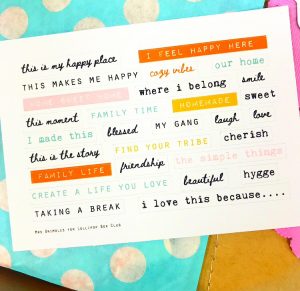 this is my happy place
I FEEL HAPPY HERE
THIS MAKES ME HAPPY
cozy vibes
our home
HOME SWEET HOME
where i belong
smile
this moment
FAMILY TIME
HOMEMADE
sweet
I made this
blessed
MY GANG
laugh
love
this is the story
FIND YOUR TRIBE
cherish
FAMILY LIFE
friendship
the simple things
CREATE A LIFE YOU LOVE
beautiful
hygge
TAKING A BREAK
i love this because....
MRS BRIMBLES FOR LOLLIPOP BOX CLUB